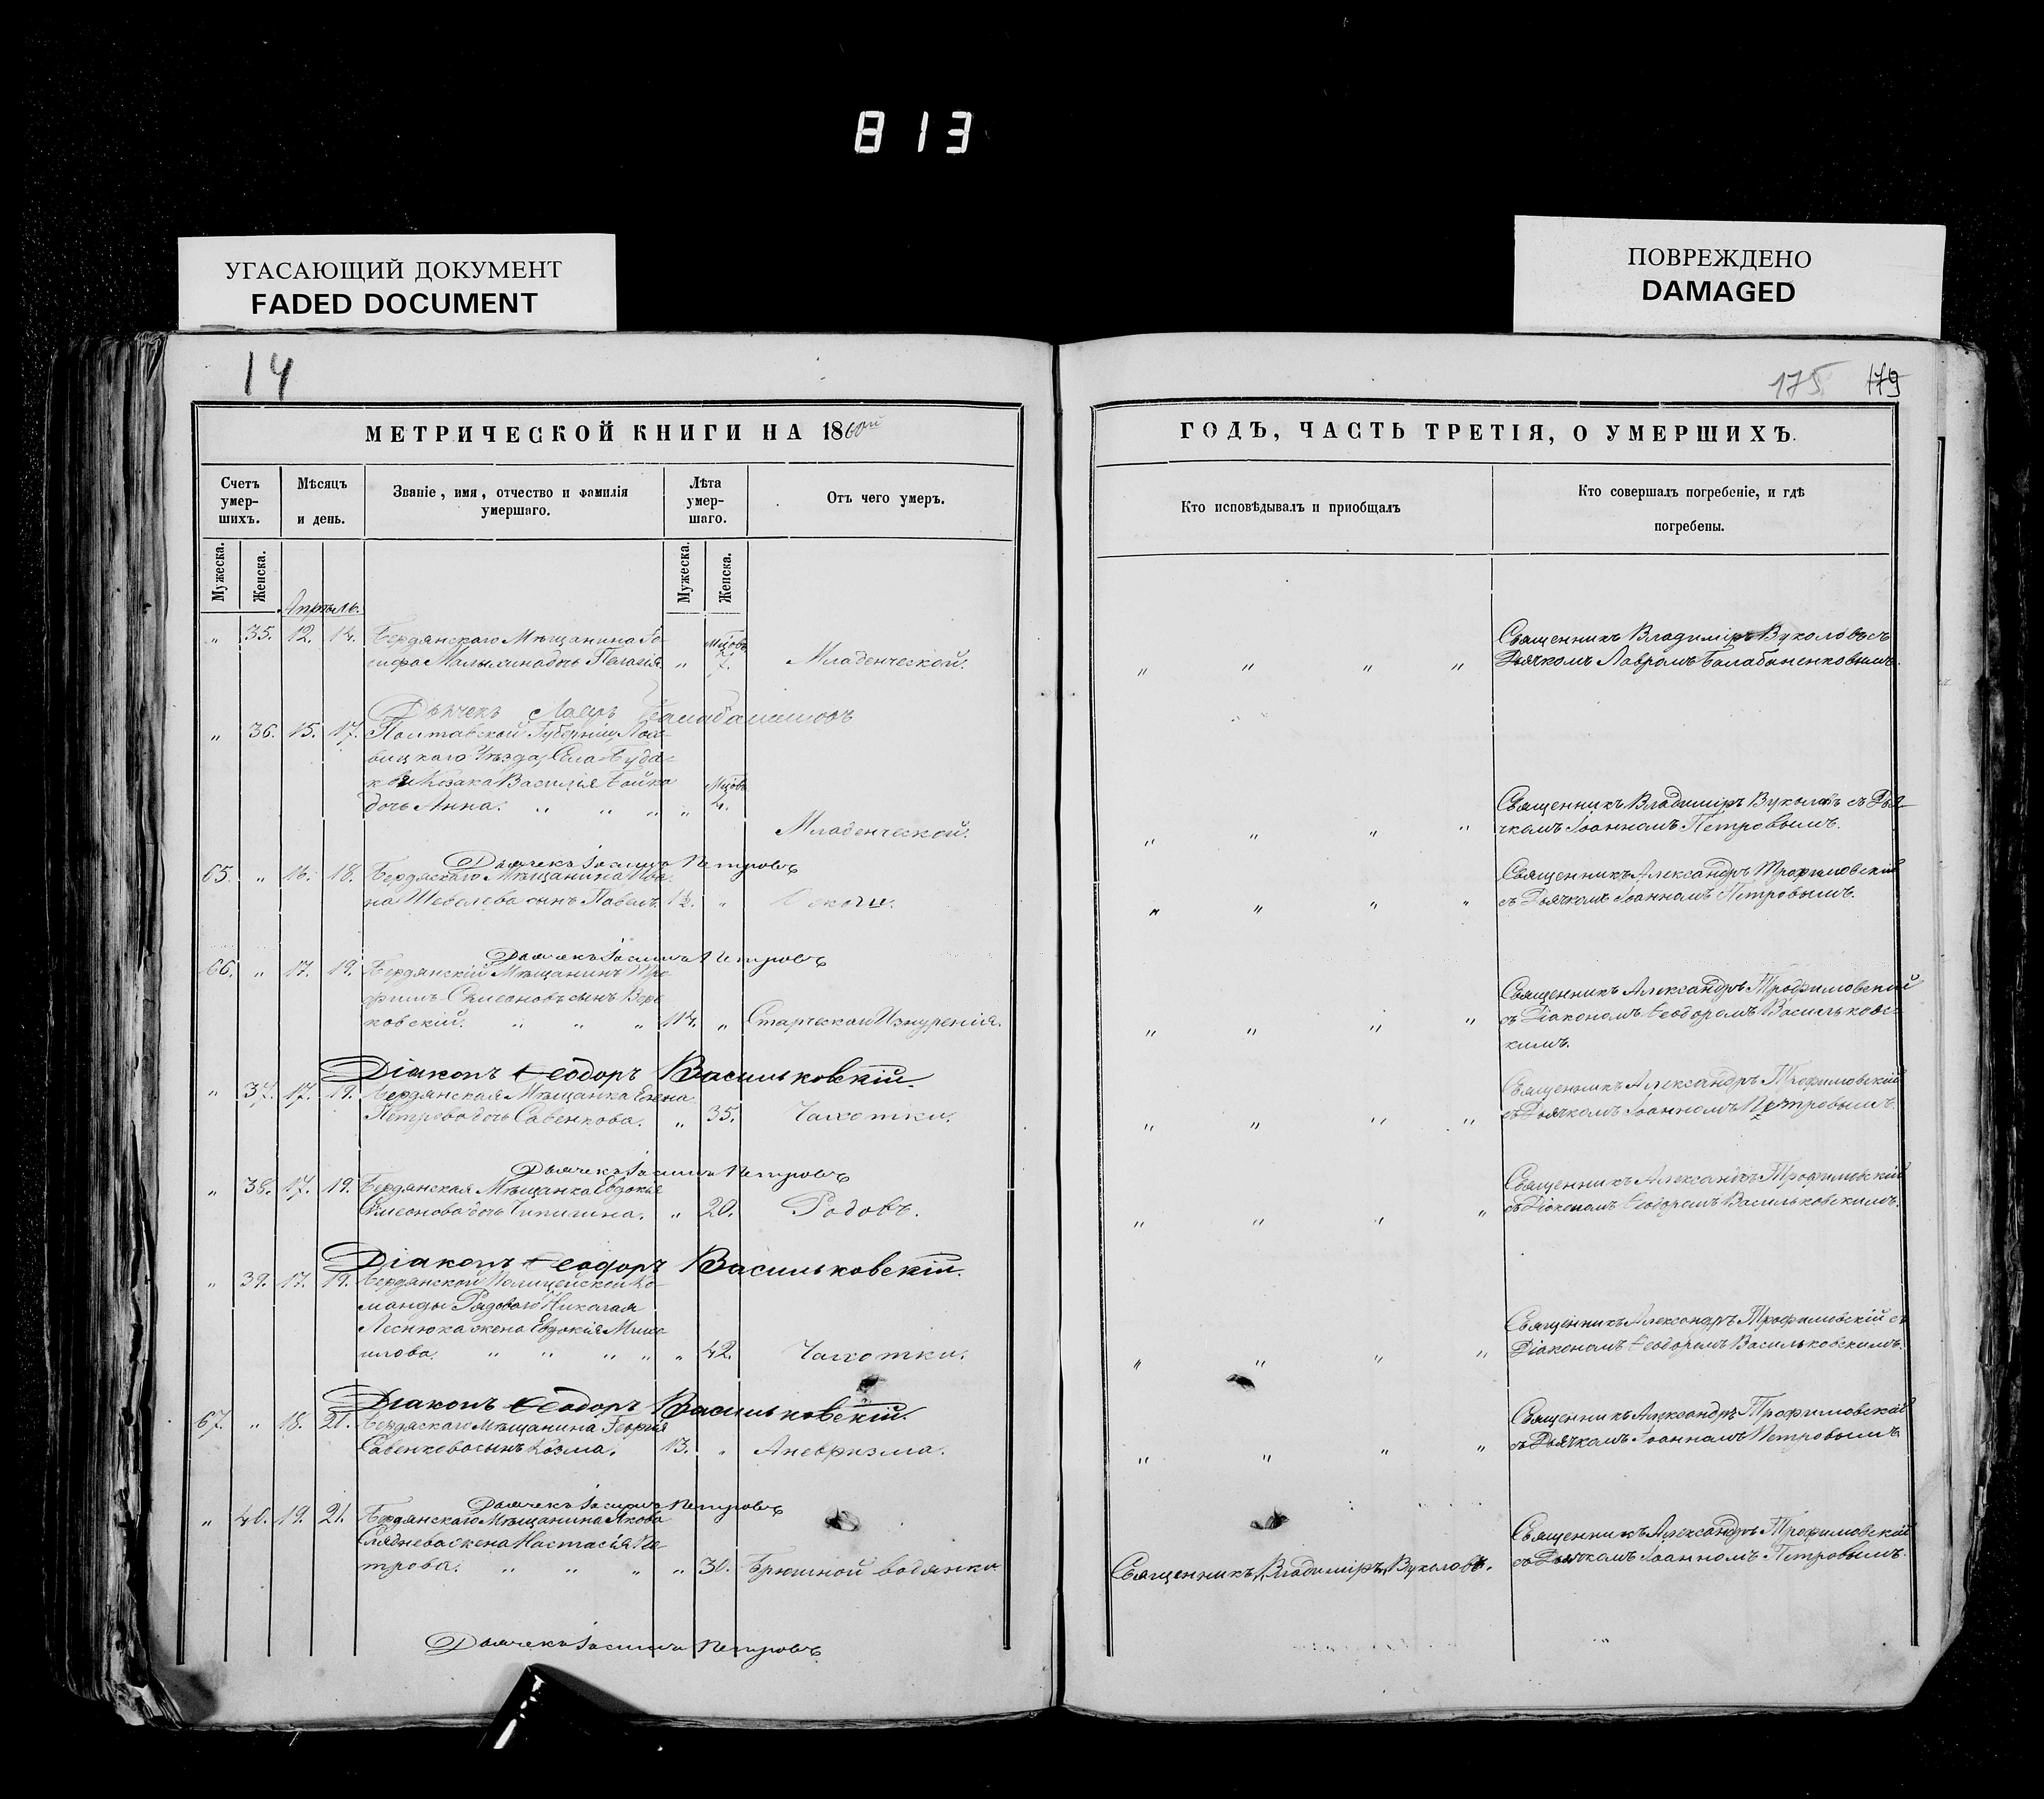 813
УГАСАЮЩИЙ ДОКУМЕНТ
FADED DOCUMENT
ПОВРЕЖДЕНО
DAMAGED
14
МЕТРИЧЕСКОЙ КНИГИ НА 1860ый
Счетъ умер-шихъ.
Мѣсяцъ и день.
Званіе, имя, отчество и фамилія умершаго.
Лѣта умер-шаго.
Отъ чего умеръ.
Мужеска.
Женска.
Мужеска.
Женска.
Апрѣль.
" 35. 12. 14. Бердянскаго Мѣщанина Іо-
сифа Малыхина дочь Пелагія. " Мѣсяцовъ 7. Младенческой.
Дьячекъ Лавръ
" 36. 15. 17. Полтавской Губерніи, Лох-
вицкаго Уѣзда, Села Буда-
Козака Василія Бойка
дочь Анна. " " " " 2. Младенческой.
Дьячекъ Іоаннъ Петровъ
65. " 16. 18. Бердяскаго Мѣщанина Ива-
на Шевелева сынъ Павелъ. 1½. "
Дьячекъ Іоаннъ Петровъ
66. " 17. 19. Бердянскій Мѣщанинъ Тро-
фимъ Сѵмеоновъ сынъ
ковскій. " " " 114. " Старческаго Изнуренія.
Діаконъ Ѳеодоръ Васильковскій.
" 37. 17. 19. Бердянская Мѣщанка Елена
Петрова дочь Савенкова. " 35. Чахотки.
Дьячекъ Іоаннъ Петровъ
" 38. 17. 19. Бердянская Мѣщанка Евдокія
Сѵмеонова дочь Чипилина. " 20. Родовъ.
Діаконъ Ѳеодоръ Васильковскій.
" 39. 17. 19. Бердянской Полицейской Ко-
манды Рядового Николая
Леснюка жена Евдокія
" " " " " 42. Чахотки.
Діаконъ Ѳеодоръ Васильковскій.
67. " 18. 21. Бердяскаго Мѣщанина Георгія
Савенкова сынъ Козма. 13. " Аневризма.
Дьячекъ Іоаннъ Петровъ
" 40. 19. 21. Бердянскаго Мѣщанина Якова
жена Настасія Пе-
трова. " " " " 30. Брюшной водянки
Дьячекъ Іоаннъ Петровъ
175 179
ГОДЪ, ЧАСТЬ ТРЕТІЯ, О УМЕРШИХЪ.
Кто исповѣдывалъ и пріобщалъ
Кто совершалъ погребеніе, и гдѣ
погребены.
Священникъ Владиміръ Вуколовъ съ
" " " " Дьячкомъ Лавромъ Балабаненковымъ.
Священникъ Владиміръ Вуколовъ съ Дья-
" " " " чкомъ Іоанномъ Петровымъ.
Священникъ Александръ Трофимовскій
" " " " съ Дьячкомъ Іоанномъ Петровымъ.
Священникъ Александръ Трофимовскій
" " " " съ Діакономъ Ѳеодоромъ Васильковс-
кимъ.
Священникъ Александръ Трофимовскій
" " " " съ Дьячкомъ Іоанномъ Петровымъ.
Священникъ Александръ Трофимовскій
" " " " съ Діакономъ Ѳеодоромъ Васильковскимъ.
Священникъ Александръ Трофимовскій съ
" " " " Діакономъ Ѳеодоромъ Васильковскимъ.
Священникъ Александръ Трофимовскій
" " " " съ Дьячкомъ Іоанномъ Петровымъ
Священникъ Александръ Трофимовскій
съ Дьячкомъ Іоанномъ Петровымъ.
Священникъ Владиміръ Вуколовъ.